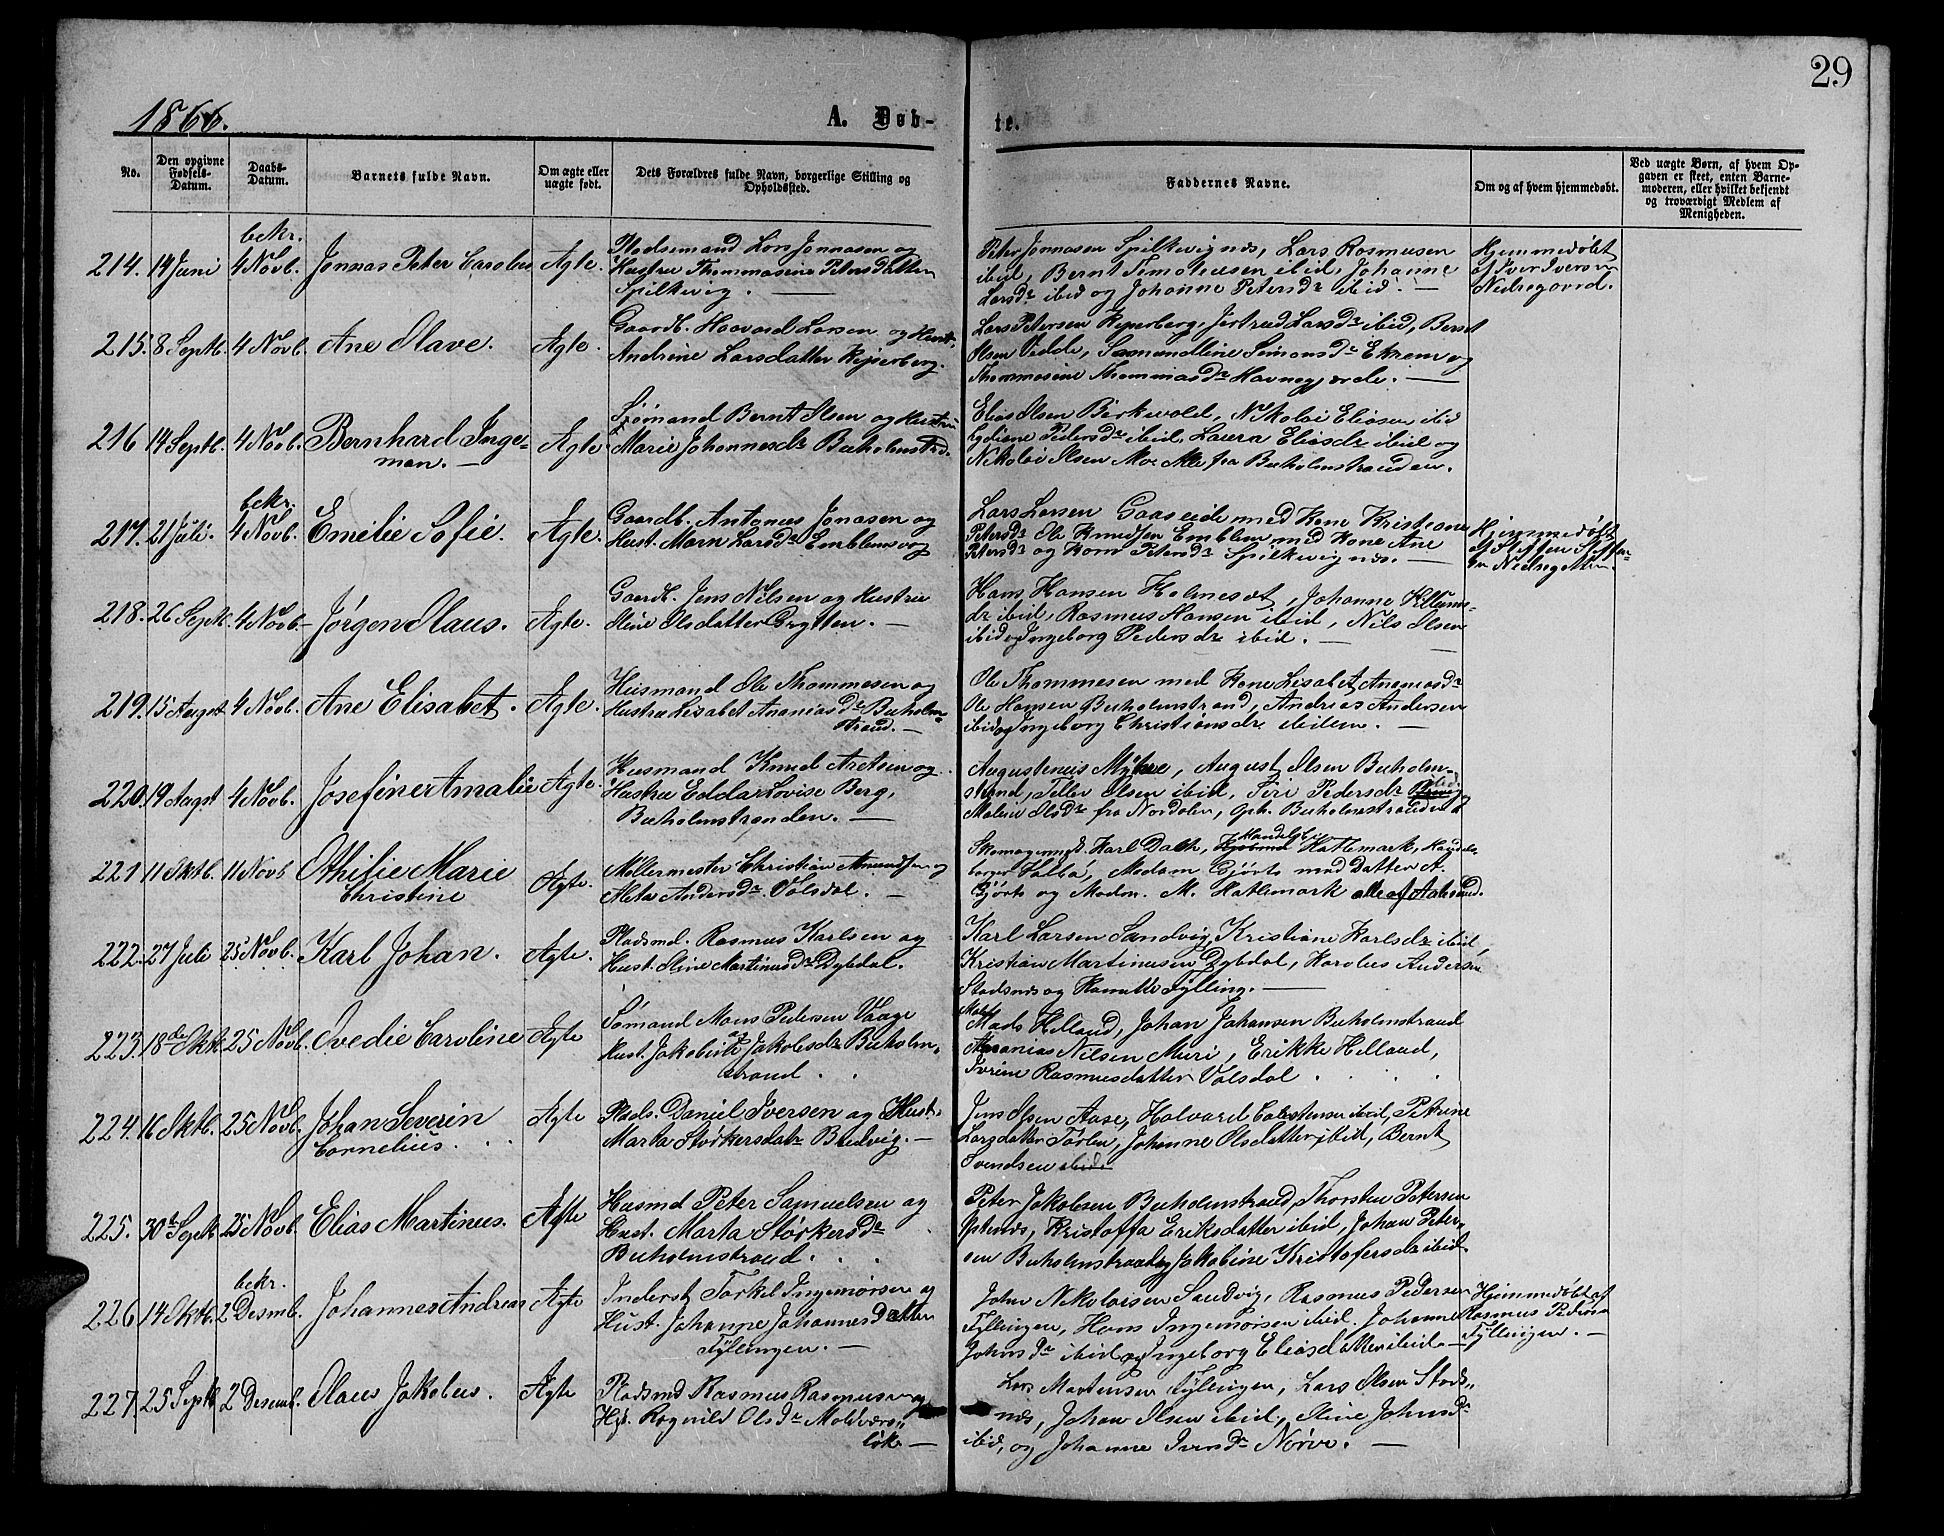 29
1866.
A. Døb-
te.
No.
Den opgivne Fødsels-Datum.
Daabs-Datum.
Barnets fulde Navn.
Om ægte eller uægte født.
Dets Forældres fulde Navn, borgerlige Stilling og Opholdssted.
Faddernes Navne.
Om og af hvem hjemmedøbt.
Ved uægte Børn, af hvem Opgaven er skeet, enten Barnemoderen, eller hvilket bekjendt og troværdigt Medlem af Menigheden.
214. 14 Juni bekr. 4 Novb. Jonnas Peter Carolus Ægte.
Pladsemand Lars Jonnasen og
Hustru Thommasine Peters Datter
Spilkevig.
Peter Jonnasen Spilkevignæs, Lars Rasmusen
ibid, Bernt Timoteusen ibid, Johanne
Larsdr ibid og Johanne Petersdr ibid.
Hjemmedøbt
af Iver Iversen
Nedregaard.
215. 8 Septb. 4 Novb. Ane Olave. Ægte.
Gaardb. Haavard Larsen og Hust.
Andrine Larsdatter
Lars Petersen Jertrud Larsdr ibid, Bernt
Olsen Vedde, Simonsdr Ekrem og
Thommasine Thommasdr Havnegjærde.
216 14 Septb. 4 Novb. Bernhard Inge-
man. Ægte.
Sjømand Bernt Olsen og Hustru
Marie Johannesdr Buholmstrd.
Elias Olsen Birkevold, Nikolai Eliasen ibid
Pedersdr ibid, Laura Eliasdr ibid og
Nikolai Olsen Moe Alle fra Buholmstranden.
217. 21 Juli. bekr. 4 Novb. Emilie Sofie. Ægte.
Gaardb. Antonius Jonasen og
Hust. Marn Larsdr Emblemsvog
Lars Larsen Gaaseide med Kone Kristiane
Petersdr Ole Knudsen Emblem med Kone Ane
Petersdr og Karn Petersdr Spilkevignæs.
Hjemmedøbt
af Steffen Steffen-
218. 26 Septb. 4 Novb. Jørgen Olaus. Ægte.
Gaardb. Jens Nilsen og Hustru
Oline Olsdatter Grytten.
Hans Hansen Holmeset, Johanne
dr ibid, Rasmus Hansen ibid, Nils Olsen
ibid og Ingeborg Pedersdr ibid.
219. 15 August 4 Novb. Ane Elisabet. Ægte.
Husmand Ole Thommesen og
Hustru Lisabet Ananiasdr Buholm-
strand.
Ole Thommesen med Kone Lisabet Ananiasdr
Ole Hansen Buholmstrand, Andrias Andersen
ibid og Ingeborg Christiansdr ibidem.
220. 19 Augst 4 Novb. Josefine Amalie Ægte.
Husmand Knud Aretsen og
Hustru Edda Lovise Berg,
Buholmstranden.
Augustenus August Olsen Buholm-
strand, Olsen ibid, Siri Pedersdr
Malene Olsdr fra Nordalen, Oph. Buholmstranden
221 11 Oktb. 11 Novb Othilie Marie
Christine Ægte.
Møllermester Christian Amundsen og
Meta Andersdr. Volsdal.
Skomagermst. Karl Dath, Handelsb. Hatlemark, Handels-
borger Madam Gjørts med Datter A.
Gjørts og Madm. M. Hatlemark alle af Aalesund.
222. 27 Juli 25 Novb. Karl Johan. Ægte.
Pladsmd. Rasmus Karlsen og
Hust. Oline Martinusdr Dybdal.
Karl Larsen Sandvig, Kristiane Karlsdr ibid,
Kristian Martinusen Dybdal, Karolus Andersen
Stadsnæs og Tylling.
223. 18de Oktb 25 Novb. Ovedie Caroline Ægte
Sømand Mons Pedersen Vaage
og
Hust. Jakobine Jakobsdr Buholm-
strand.
Mads Helland, Johan Johansen Buholmstrand
Ananias Nilsen Muri, Erikke Helland,
Ivrine Rasmusdatter Volsdal
224. 16 Oktb. 25 Novb. Johan Severin
Cornelius. Ægte
Plads. Daniel Iversen og Hust.
Marta Størkersdatr Bredvig.
Jens Olsen Aase, Halvard ibid, Petrine
Larsdatter Johanne Olsdatter ibid, Bernt
Svendsen ibid
225. 30te Septb 25 Novb. Elias Martinus. Ægte
Husmd Peter Samuelsen og
Hust. Marta Størkersdr
Buholmstrand.
Peter Jakobsen Buholmstrand, Thorsten Petersen
Kristoffa Eriksdatter ibid, Johan Peter-
sen Buholmstrand og Jakobine Kristofersdr ibid.
226. 14 Oktb. bekr. 2 Desmb. Johannes Andreas Ægte
Inderst Torkel Ingemorsen og
Hust. Johanne Johannes Datter
Tyllingen.
John Nikolaisen Sandvig, Rasmus Pedersen
Tyllingen, Hans Ingemorsen ibid. Johanne
Johnsdr ibid og Ingeborg Eliasdatter ibid.
Hjemmedøbt af
Rasmus Pedersen
Tyllingen.
227. 25 Septb 2 Desemb. Olaus Jakobus. Ægte
Pladsmd Rasmus Rasmusen og
Ragnild Olsdr Moldværs-
løk
Lars Martensen Tyllingen, Lars Olsen Stads-
næs, Johan Olsen ibid, Oline Johnsdr
ibid, og Johanne Iversdr Nørve.